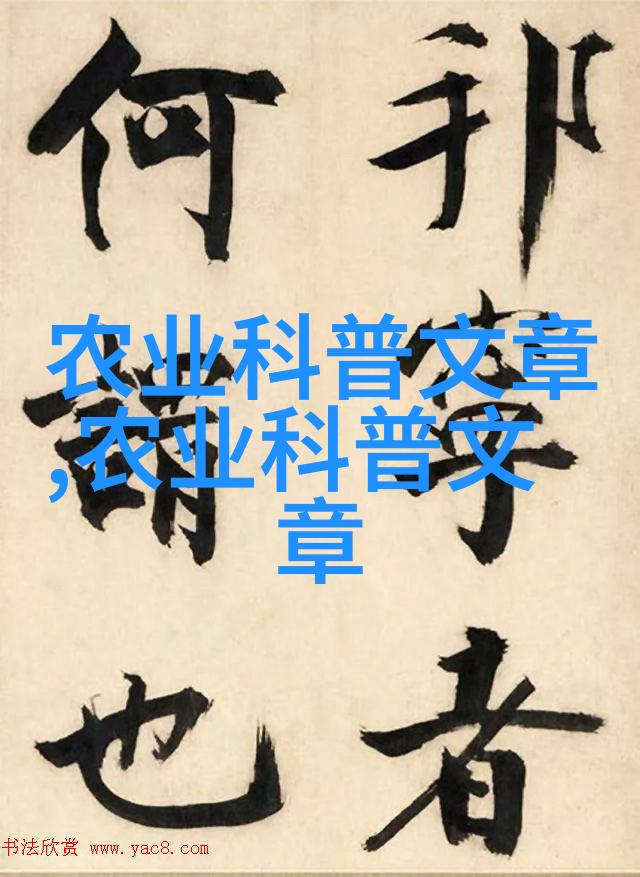 邦寧者
何謂也
农业科普文章
,农业科普文
章
书法欣赏 www.yac8.com